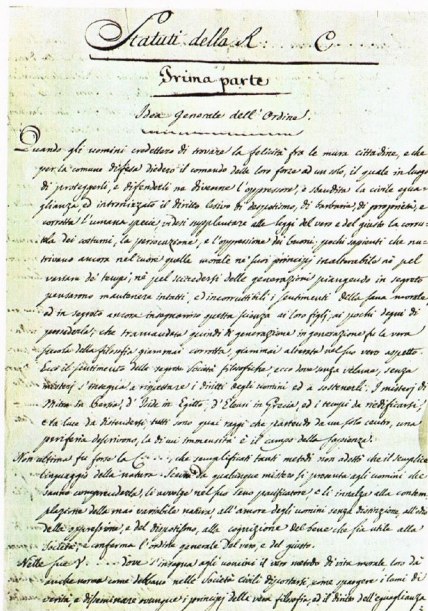 Statuti della R: C....
Prima parte
Idea Generale dell'Ordine.
Quando gli uomini credettero di trovare la felicità fra le mura cittadine, e che
per la comune difesa diedero il comando delle loro forze ad un solo, il quale in luogo
di proteggerli, e difenderli ne divenne l'oppressore, e sbandita la civile egua-
glianza ed intronizzato il diritto di despotismo, di barbarie, di proprietà, e
corrotta l'umana specie, videsi soppiantare alle leggi del vero e del giusto la corru-
tela dei costumi, la persecuzione, e l'oppressione dei buoni; pochi sapienti che nu-
trivano ancora nel cuore quella morale ne' suoi principj inalterabile nè pel
variare de' tempi, nè pel succedersi delle generazioni piangendo in segreto
pensarono mantenere intatti, ed incorruttibili i sentimenti della sana morale
ed in segreto ancora insegnarono questa scienza ai loro figli, ai pochi degni di
possederla, che tramandata quindi di generazione in generazione fu la vera
scuola della filosofia giammai corrotta, giammai alterata nel suo vero aspetto.
Ecco il sentimento delle segrete Società filosofiche, ecco dove senza velame, senza
misterj s'insegna a rispettare i diritti degli uomini ed a sostenerli. I misterj di
Mitra in Persia, d'Iside in Egitto, d'Eleusi in Grecia, ed i tempj da riedificarsi,
e la luce da distendersi tutti sono quai raggi che partendo da un solo centro, una
periferia descrivono, la di cui immensità è il campo della sapienza.
Non ultima fu forse la C...., che semplificati tanti metodi non adottò che il semplice
linguaggio della natura. Scevra di qualunque mistero si presenta agli uomini che
sanno comprenderla, li avvolge nel suo seno pacificatore e li innalza alla contem-
plazione della mai variabile natura all'amore degli uomini senza distinzione, all'odio
della oppressione, e del dispotismo, alla cognizione del bene che sia utile alla
Società, e conforma l'ordine generale del vero, e del giusto.
Nelle sue V.... dove s'insegna agli uomini il vero metodo di vita morale, loro dà
anche norma come debbano nelle Società civili diportarsi, come spargere i lumi di
verità, e disseminare ovunque i principj della vera filosofia, ed il diritto dell'eguaglianza